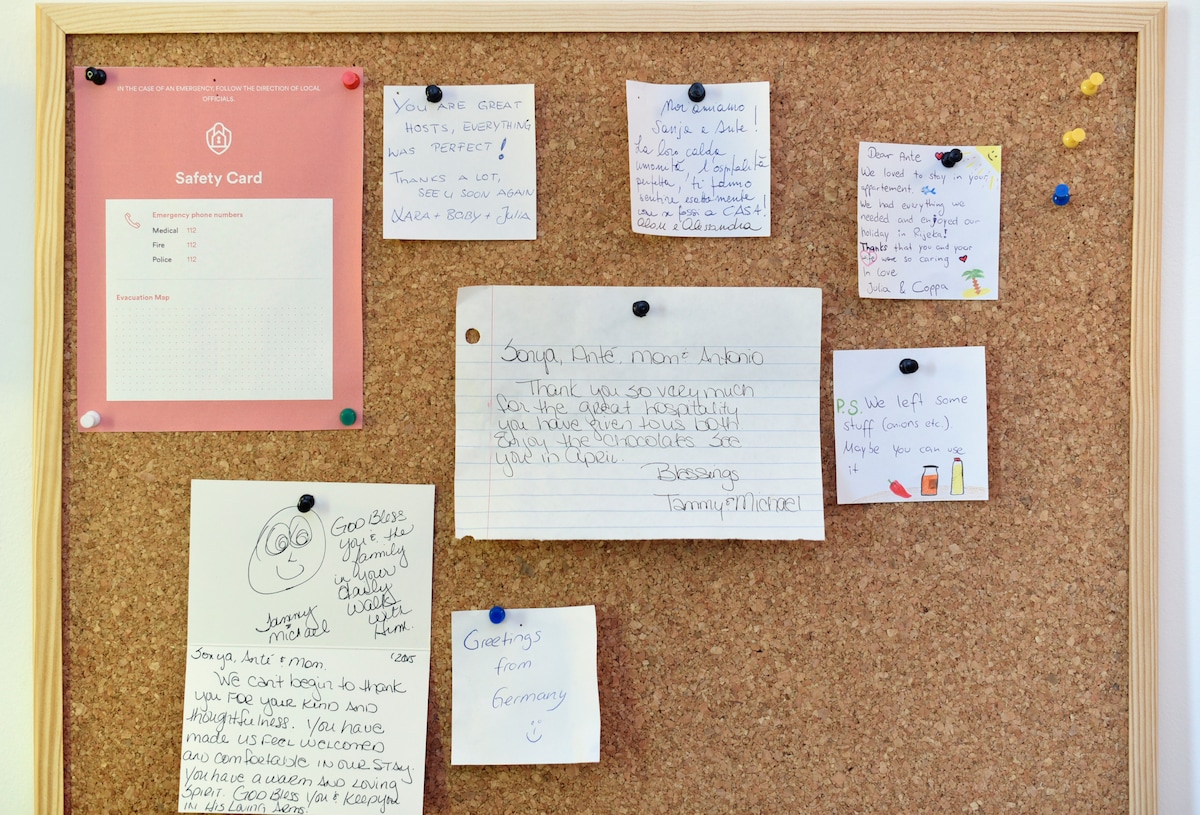 IN THE CASE OF AN EMERGENCY, FOLLOW THE DIRECTION OF LOCAL
OFFICIALS.
Safety Card
Emergency phone numbers
Medical 112
Fire 112
Police 112
Evacuation Map
YOU ARE GREAT
HOSTS, EVERYTHING
WAS PERFECT!
THANKS A LOT,
SEE U SOON AGAIN
LARA + BOBY + JULIA
Noi amiamo
Sanja e Ante!
La loro calda
umanità, l'ospitalità
perfetta, ti fanno
sentire esattamente
come se fossi a CASA!
Alan e Alessandra
Dear Ante
We loved to stay in your
appartement,
We had everything we
needed and enjoyed our
holiday in Rijeka!
Thanks that you and your
wife were so caring
In love
Julia & Coppa
Sonya, Anté, mom & Antonio
Thank you so very much
for the great hospitality
you have given to us both
Enjoy the chocolates see
you in april.
Blessings
Tammy & Michael
P.S. We left some
stuff (onions etc.).
Maybe you can use
it
GOD Bless
you & the
family
in your
daily
walk
with
Him.
Tammy
&
michael
Sonya, Anté & mom. '2015
We can't begin to thank
you FOR YOUR KIND AND
thoughtfulness. You have
made us Feel welcomed
AND comfortable IN OUR STAY.
You have a warm AND loving
Spirit. GOD Bless You & Keep you
IN HIS Loving Arms.
Greetings
from
Germany